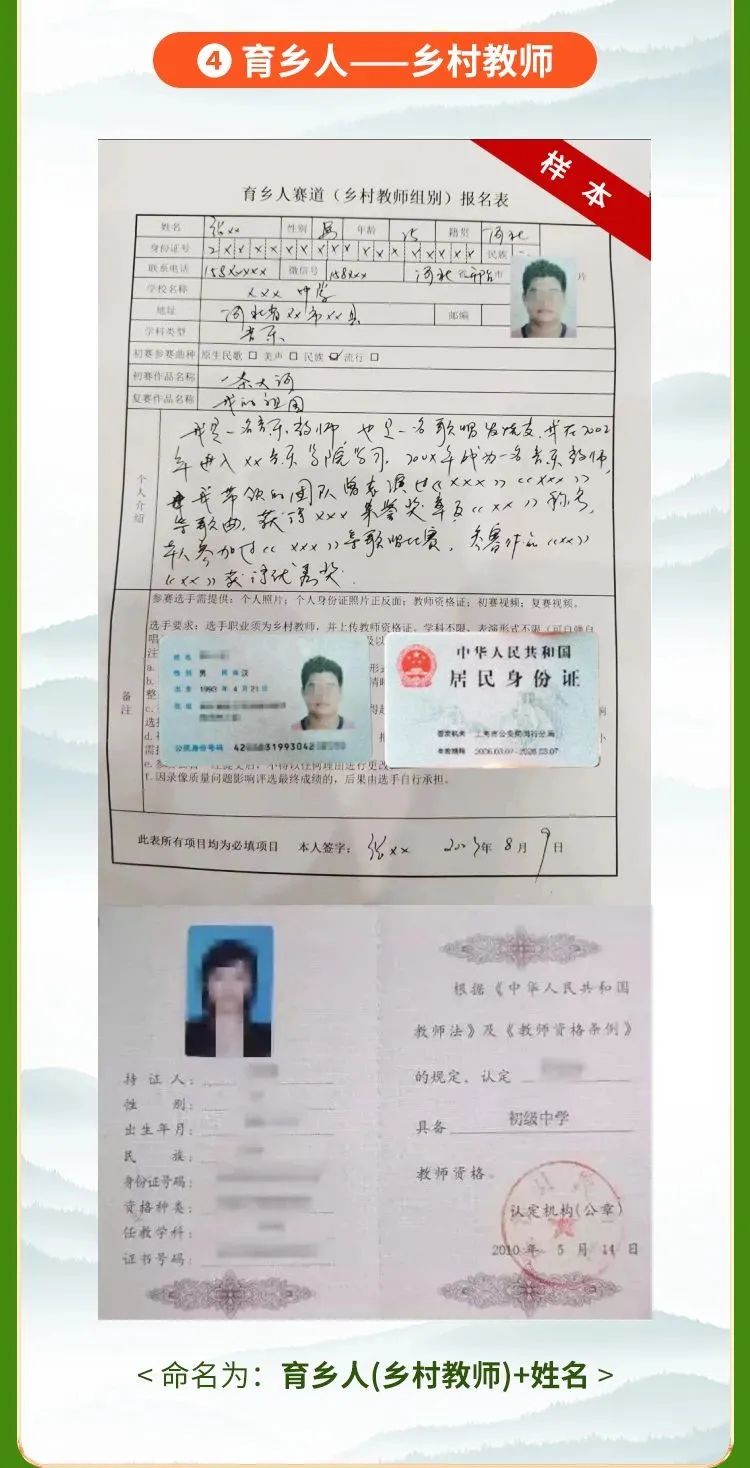 4 育乡人——乡村教师
样本
育乡人赛道（乡村教师组别）报名表
姓名 张xx 性别 男 年龄 25 籍贯 河北
身份证号 2 x x x x x x x x x x x x x x x x x 民族
联系电话 158xxxxx 微信号 158xxx 河北省邢台市
片
学校名称 xxx 中学
地址 河北省xx市xx县 邮编
学科类型 音乐
初赛参赛曲种 原生民歌 □ 美声 □ 民族 ☑ 流行 □
初赛作品名称 一条大河
复赛作品名称 我的祖国
个人介绍
我是一名音乐教师，也是一名歌唱发烧友，我在2002
年进入xx音乐学院学习，200x年成为一名音乐教师，
我带领的团队曾表演过《xxx》《xxx》
等歌曲，获得xxx集誉奖章及《xx》称号，
本人参加过《xxx》等歌唱比赛，参赛作品《xx》
《xx》获得优秀奖．
备注
参赛选手需提供：个人照片；个人身份证照片正反面；教师资格证；初赛视频；复赛视频。
选手要求：选手职业须为乡村教师，并上传教师资格证。学科不限，表演形式不限（可自弹自
姓名
性别 男 民族 汉
出生 1993 年 4 月 21 日
住址
公民身份号码 42 31993042
中华人民共和国
居民身份证
签发机关 上海市公安局闵行分局
有效期限 2006.03.07-2026.03.07
f.因录像质量问题影响评选最终成绩的，后果由选手自行承担。
此表所有项目均为必填项目 本人签字： 张xx 2023年 8 月 9 日
持证人：
性别：
出生年月：
民族：
身份证号码：
资格种类：
任教学科：
证书号码：
根据《中华人民共和国
教师法》及《教师资格条例》
的规定，认定
具备 初级中学
教师资格。
认定机构(公章)
2010 年 5 月 14 日
< 命名为：育乡人(乡村教师)+姓名 >